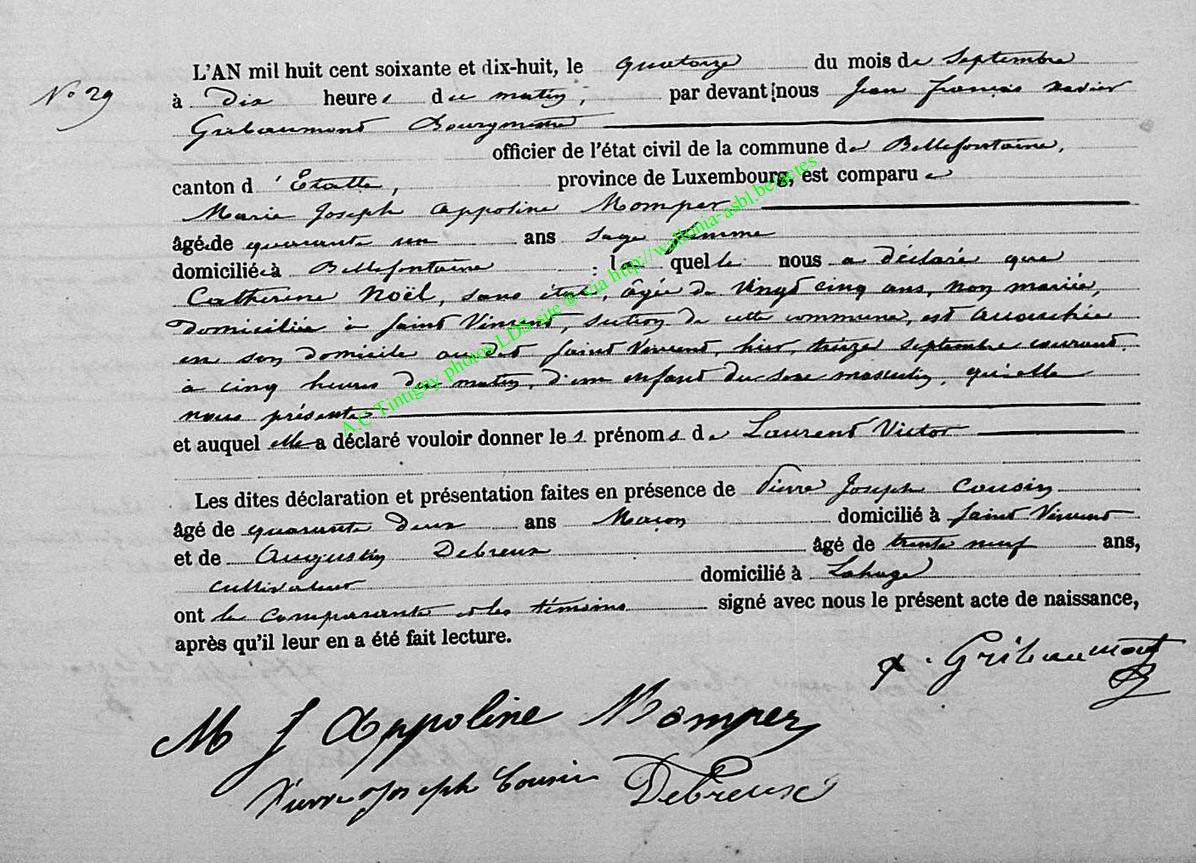 L'AN mil huit cent soixante et dix-huit, le quatorze du mois de Septembre
N° 29
à dix heures du matin, par devant nous Jean François Xavier
Gribaumont Bourgmestre
officier de l'état civil de la commune de Bellefontaine,
canton d'Étalle, province de Luxembourg, est comparue
Marie Joseph Appoline Momper
âgée de quarante un ans sage femme
domiciliée à Bellefontaine : laquelle nous a déclaré que
Catherine Noël, sans état, âgée de vingt cinq ans, non mariée,
domiciliée à Saint Vincent, section de cette commune, est accouchée
en son domicile audit Saint Vincent, hier, treize septembre courant,
à cinq heures du matin, d'un enfant du sexe masculin, qu'elle
nous présente
et auquel elle a déclaré vouloir donner les prénoms de Laurent Victor
Les dites déclaration et présentation faites en présence de Pierre Joseph Cousin
âgé de quarante deux ans Maçon domicilié à Saint Vincent
et de Augustin Debreux âgé de trente neuf ans,
cultivateur domicilié à Lahage
ont la comparante et les témoins signé avec nous le présent acte de naissance,
après qu'il leur en a été fait lecture.
x. Gribaumont
M J Appoline Momper
Pierre Joseph Cousin Debreux
A.C Tintigny photos LDS sue @ via http://wallonia-asbl.be/actes